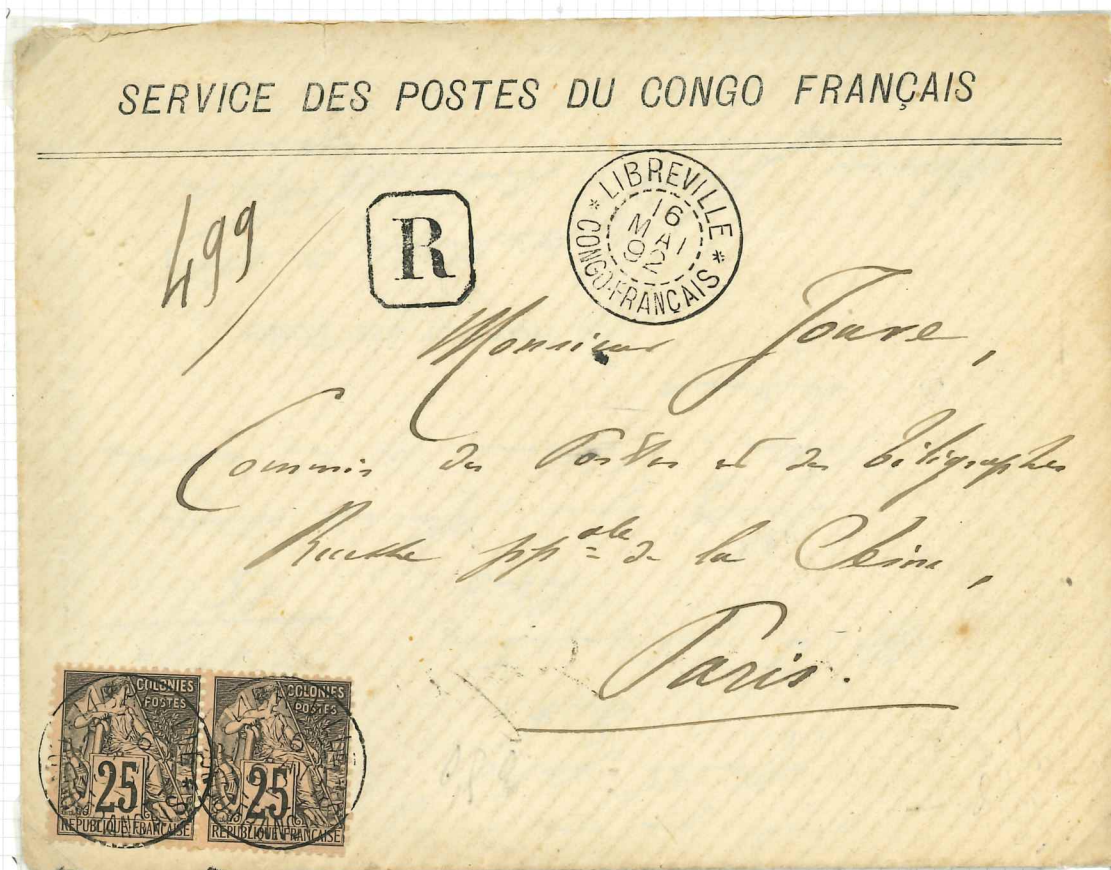 SERVICE DES POSTES DU CONGO FRANÇAIS
499
R
* LIBREVILLE *
16
MAI
92
CONGO-FRANÇAIS
Monsieur Jouve,
Commis des Postes et des Télégraphes
Recette pp^ale de la Seine,
Paris.
COLONIES
POSTES
25
REPUBLIQUE FRANÇAISE
COLONIES
POSTES
25
REPUBLIQUE FRANÇAISE